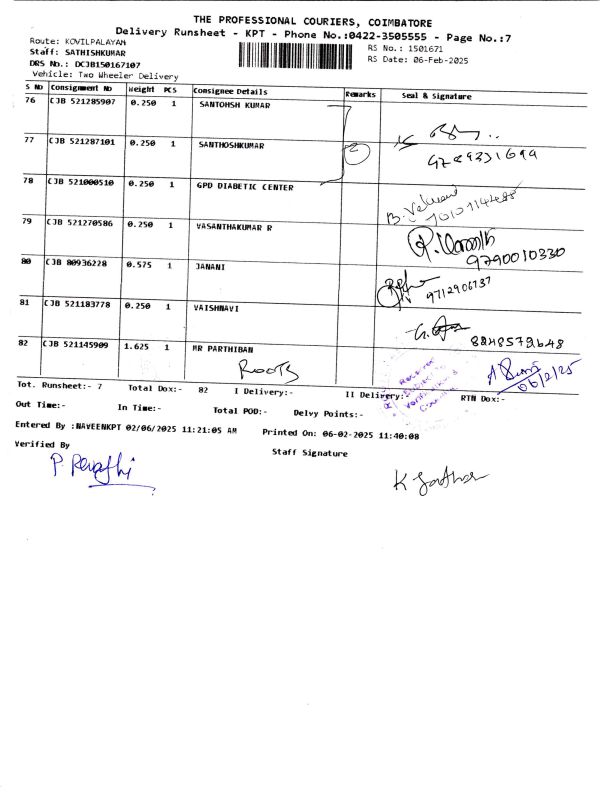 THE PROFESSIONAL COURIERS, COIMBATORE
Delivery Runsheet - KPT - Phone No.:0422-3505555 - Page No.:7
Route: KOVILPALAYAM
Staff: SATHISHKUMAR
DRS No.: DCJB150167107
Vehicle: Two Wheeler Delivery
RS No.: 1501671
RS Date: 06-Feb-2025
S No Consignment No Weight PCS Consignee Details Remarks Seal & Signature
76 CJB 521285907 0.250 1 SANTOHSH KUMAR
77 CJB 521287101 0.250 1 SANTHOSHKUMAR 2
78 CJB 521000510 0.250 1 GPD DIABETIC CENTER
79 CJB 521270586 0.250 1 VASANTHAKUMAR R 9790010330
80 CJB 80936228 0.575 1 JANANI
81 CJB 521183778 0.250 1 VAISHNAVI
82 CJB 521145909 1.625 1 MR PARTHIBAN
ROOTS 06/2/25
Tot. Runsheet:- 7 Total Dox:- 82 I Delivery:- II Delivery:- RTN Dox:-
Out Time:- In Time:- Total POD:- Delvy Points:-
Entered By :NAVEENKPT 02/06/2025 11:21:05 AM Printed On: 06-02-2025 11:40:08
Verified By Staff Signature